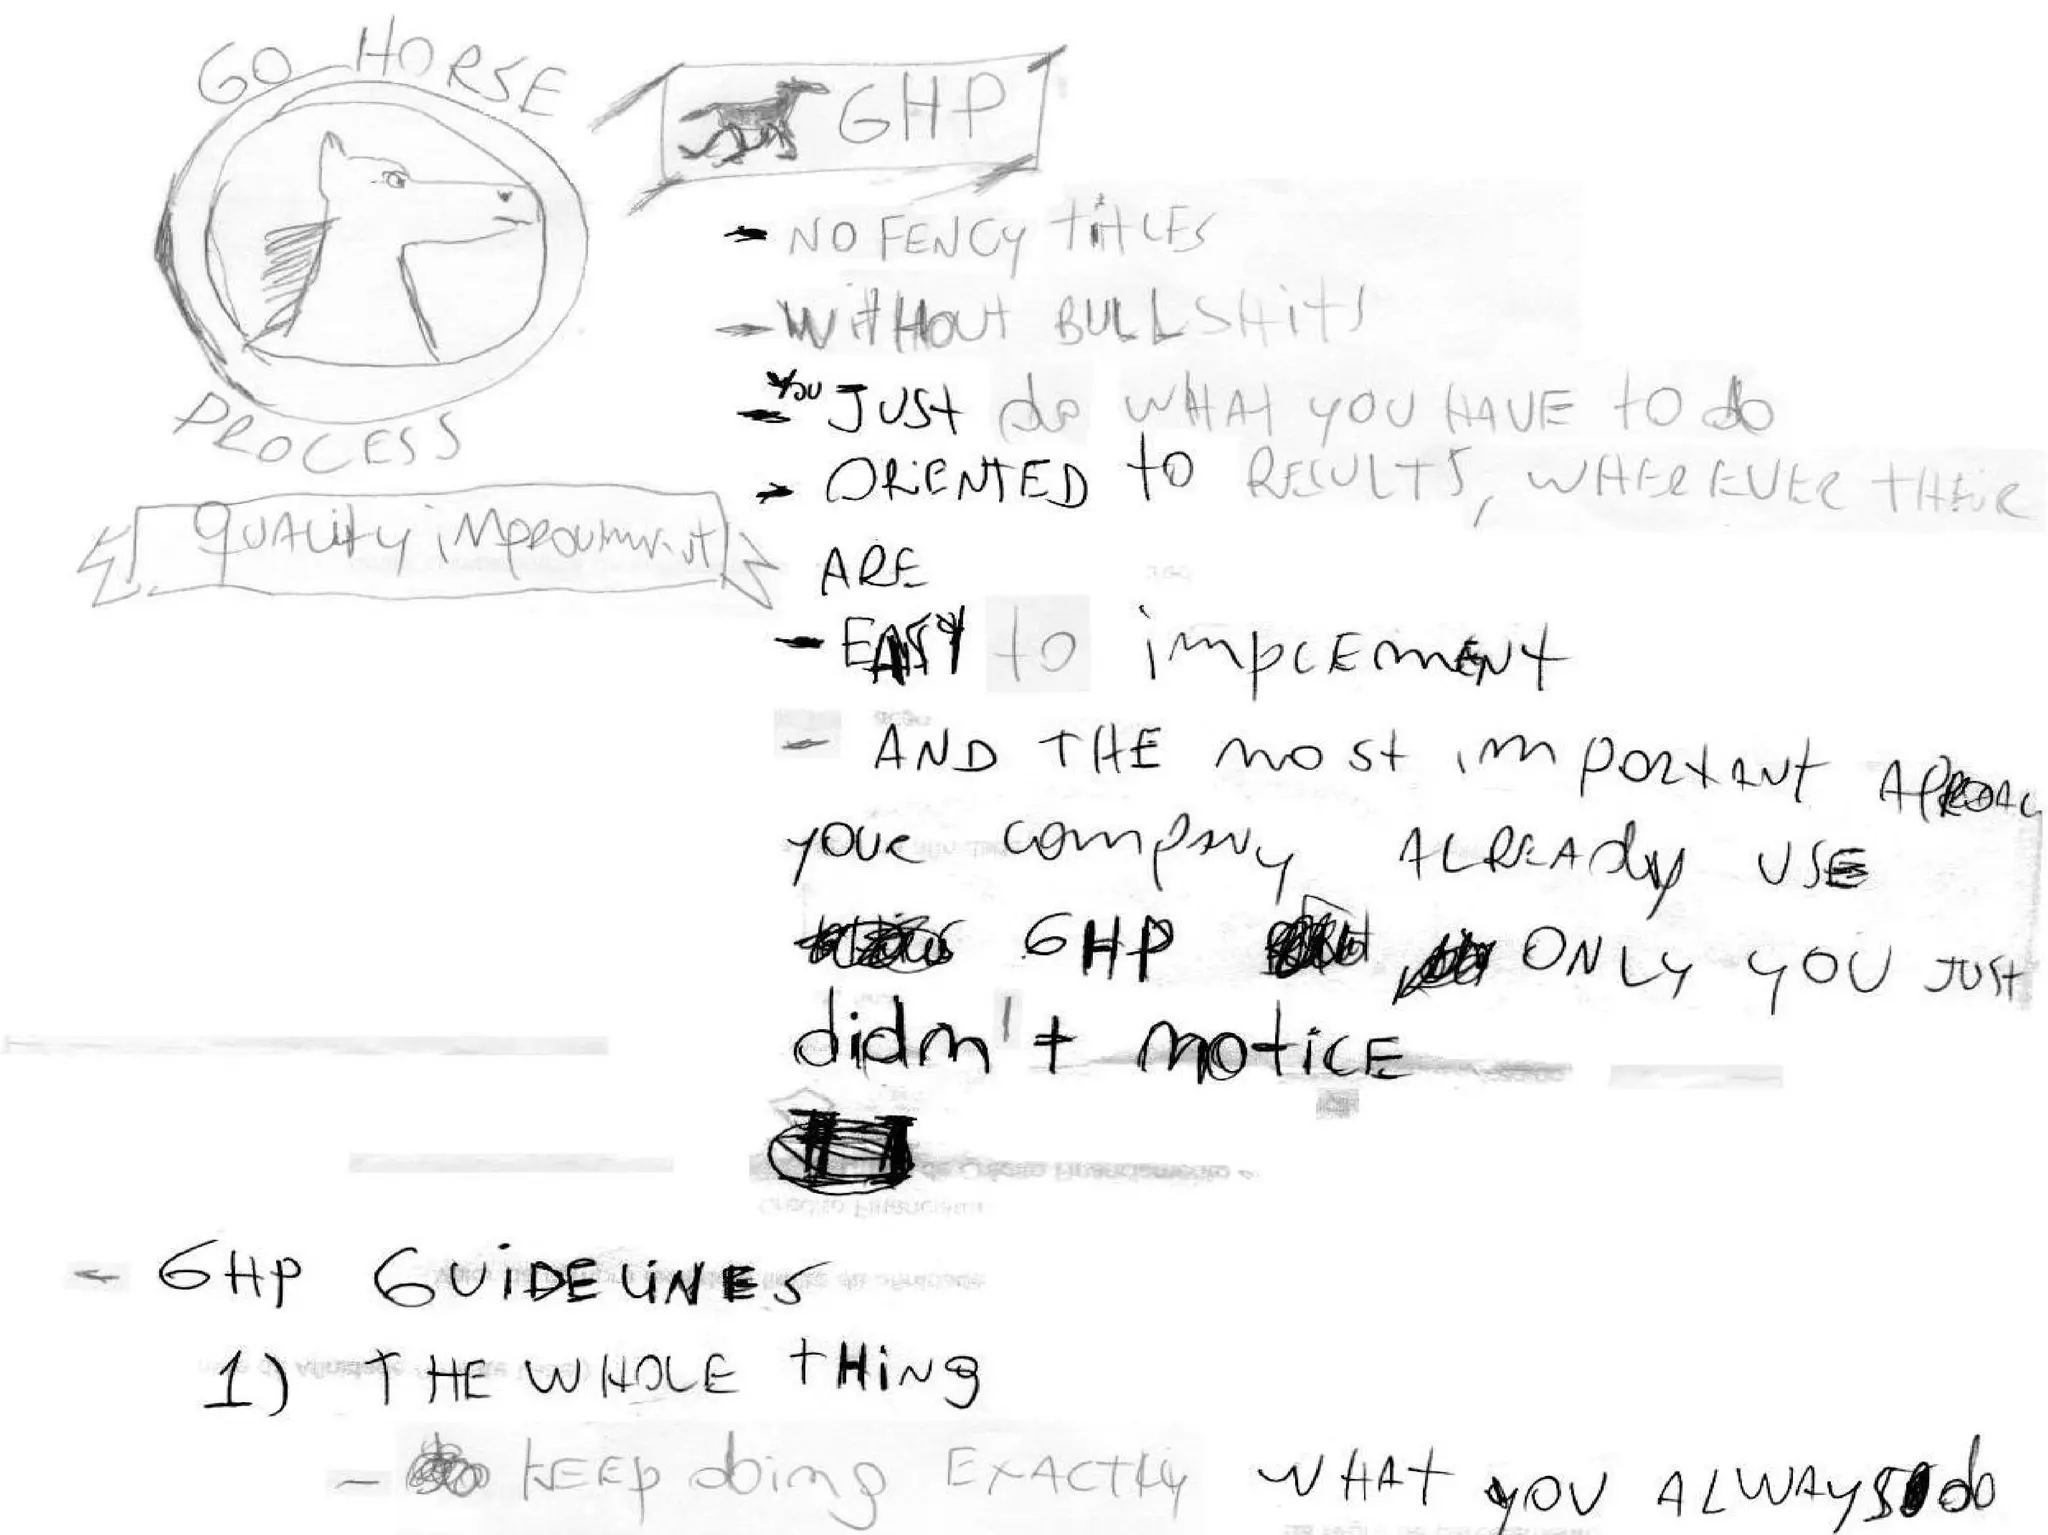 GO HORSE
PROCESS
QUALity improvement
GHP
- NO FENCY titLES
- WitHout BULLSHitS
- YOU JUSt do WHAt YOU HAVE to do
- ORiENTED to RESULTS, WHEREVER THEiR
ARE
- EASY to impLEmENt
- AND THE most important APROAC
your company ALREADy USE
GHP ONLY YOU JUSt
didn't noticE
- GHP GUiDELiNES
1) THE WHOLE tHiNg
- KEEp doing EXACTLy WHAt you ALWAYS do